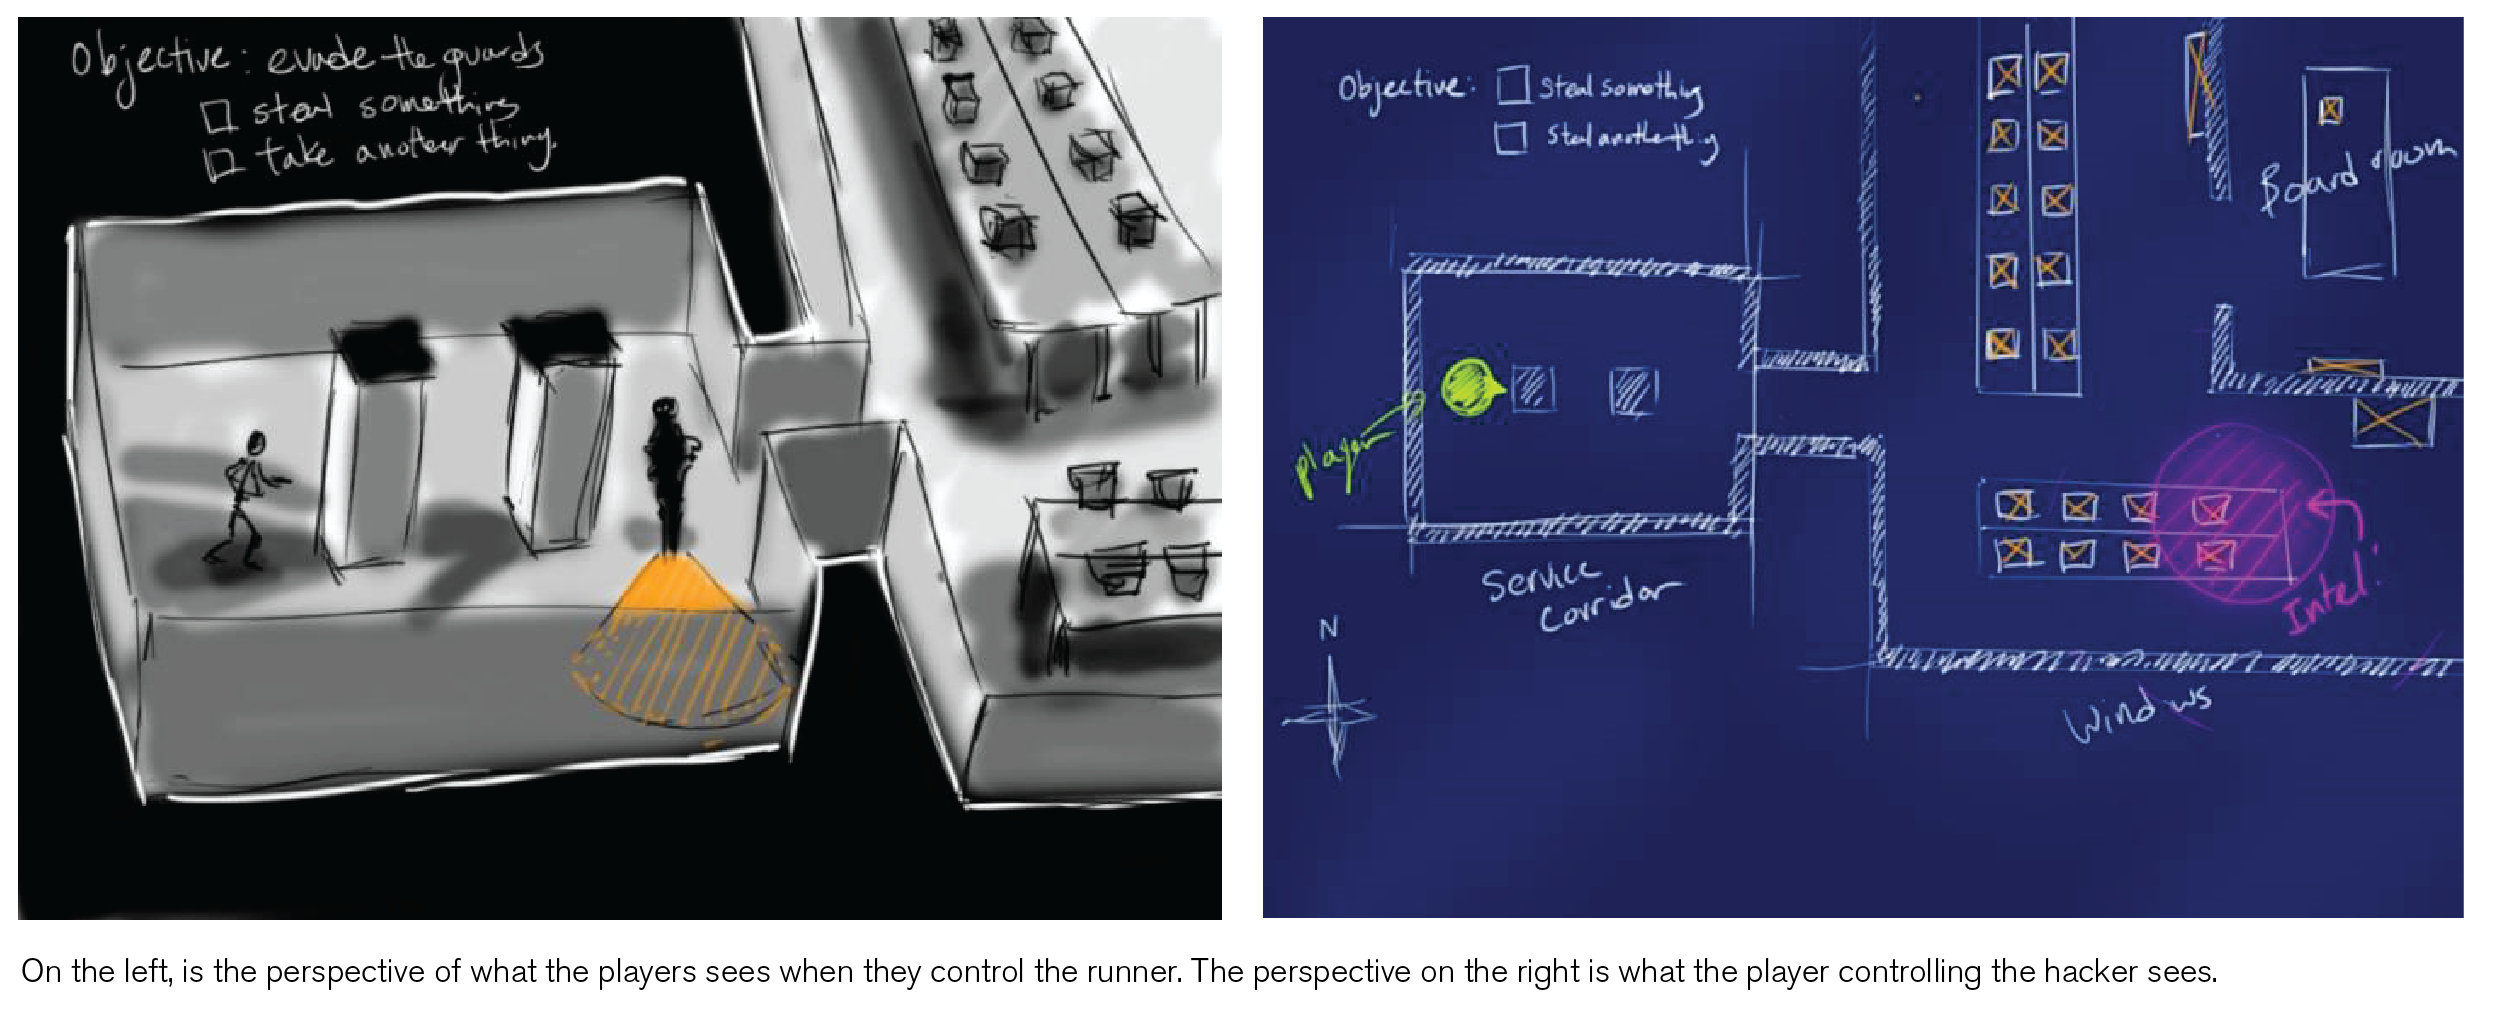 Objective: evade the guards
steal something
take another thing.
Objective:
Steal somethig
Steal anotherthig
Board room
player
Service
Corridor
Intel.
N
Windows
On the left, is the perspective of what the players sees when they control the runner. The perspective on the right is what the player controlling the hacker sees.